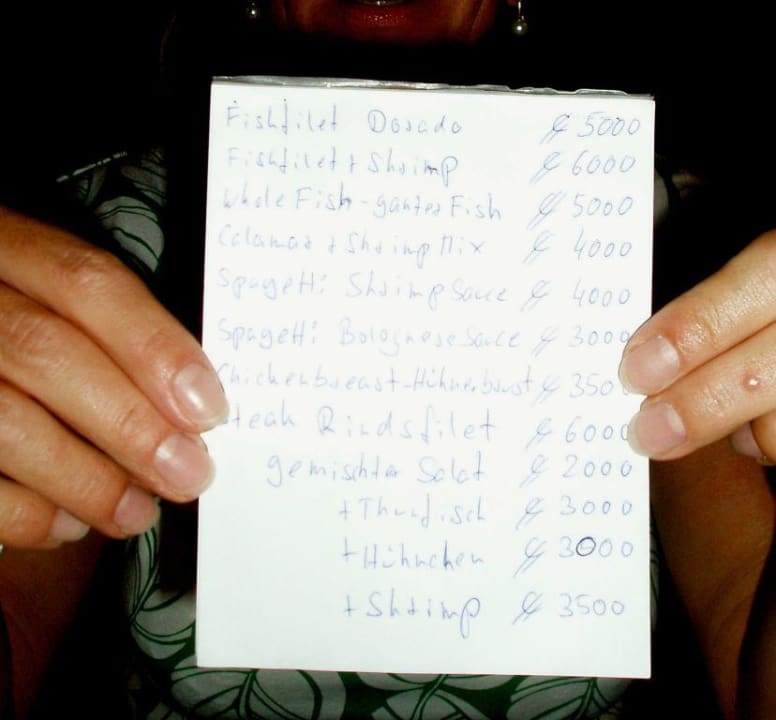 Fishfilet Dorado ₡ 5000
Fishfilet + Shrimp ₡ 6000
Whole Fish-ganzer Fish ₡ 5000
Calamar + Shrimp Mix ₡ 4000
Spagetti Shrimp Sauce ₡ 4000
Spagetti Bolognese Sauce ₡ 3000
Chickenbreast-Hühnerbrust ₡ 350
Steak Rindsfilet ₡ 6000
gemischter Salat ₡ 2000
+ Thunfisch ₡ 3000
+ Hühnchen ₡ 3000
+ Shrimp ₡ 3500